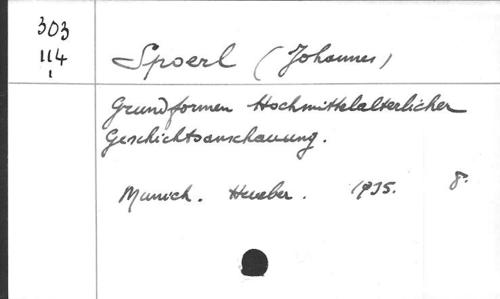 303
114
1
Spoerl (Johannes)
Grundformen Hochmittelalterlicher
Geschichtsanschauung.
Munich. Hueber. 1935. 8º